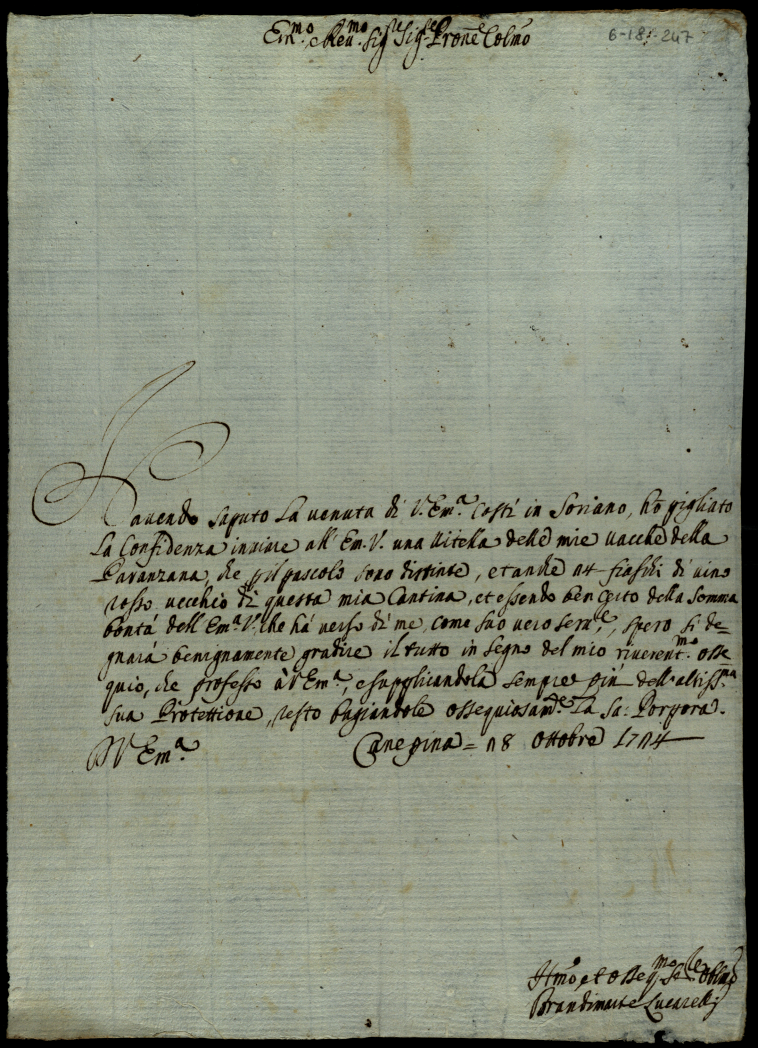 Em.mo e Reu.mo Sig.re Sig.re Prone Colmo
6-18-247
Hauendo saputo la uenuta di V. Em.a costi in Soriano, hò pigliato
la Confidenza inuiare all'Em. V. una Vitella delle mie uacche della
Pavanzana, che p il pascolo sono distinte, et anche n4 fiaschi di uino
rosso uecchio di questa mia Cantina, et essendo ben certo della somma
bontà dell'Em.a V. che hà uerso di me, come suo uero ser.re, spero si de=
gnarà benignamente gradire il tutto in segno del mio riuerent.mo osse
quio, che professo à V. Em.a, e supplicandola sempre più dell'altiss.ma
sua Protettione, resto bagiandole ossequiosam.te la Sa: Porpora.
Di V. Em.a Canepina = n8 Ottobre 1714
Hmo et osseq.mo Se.re oblmo
Brandimarte Lucarelli